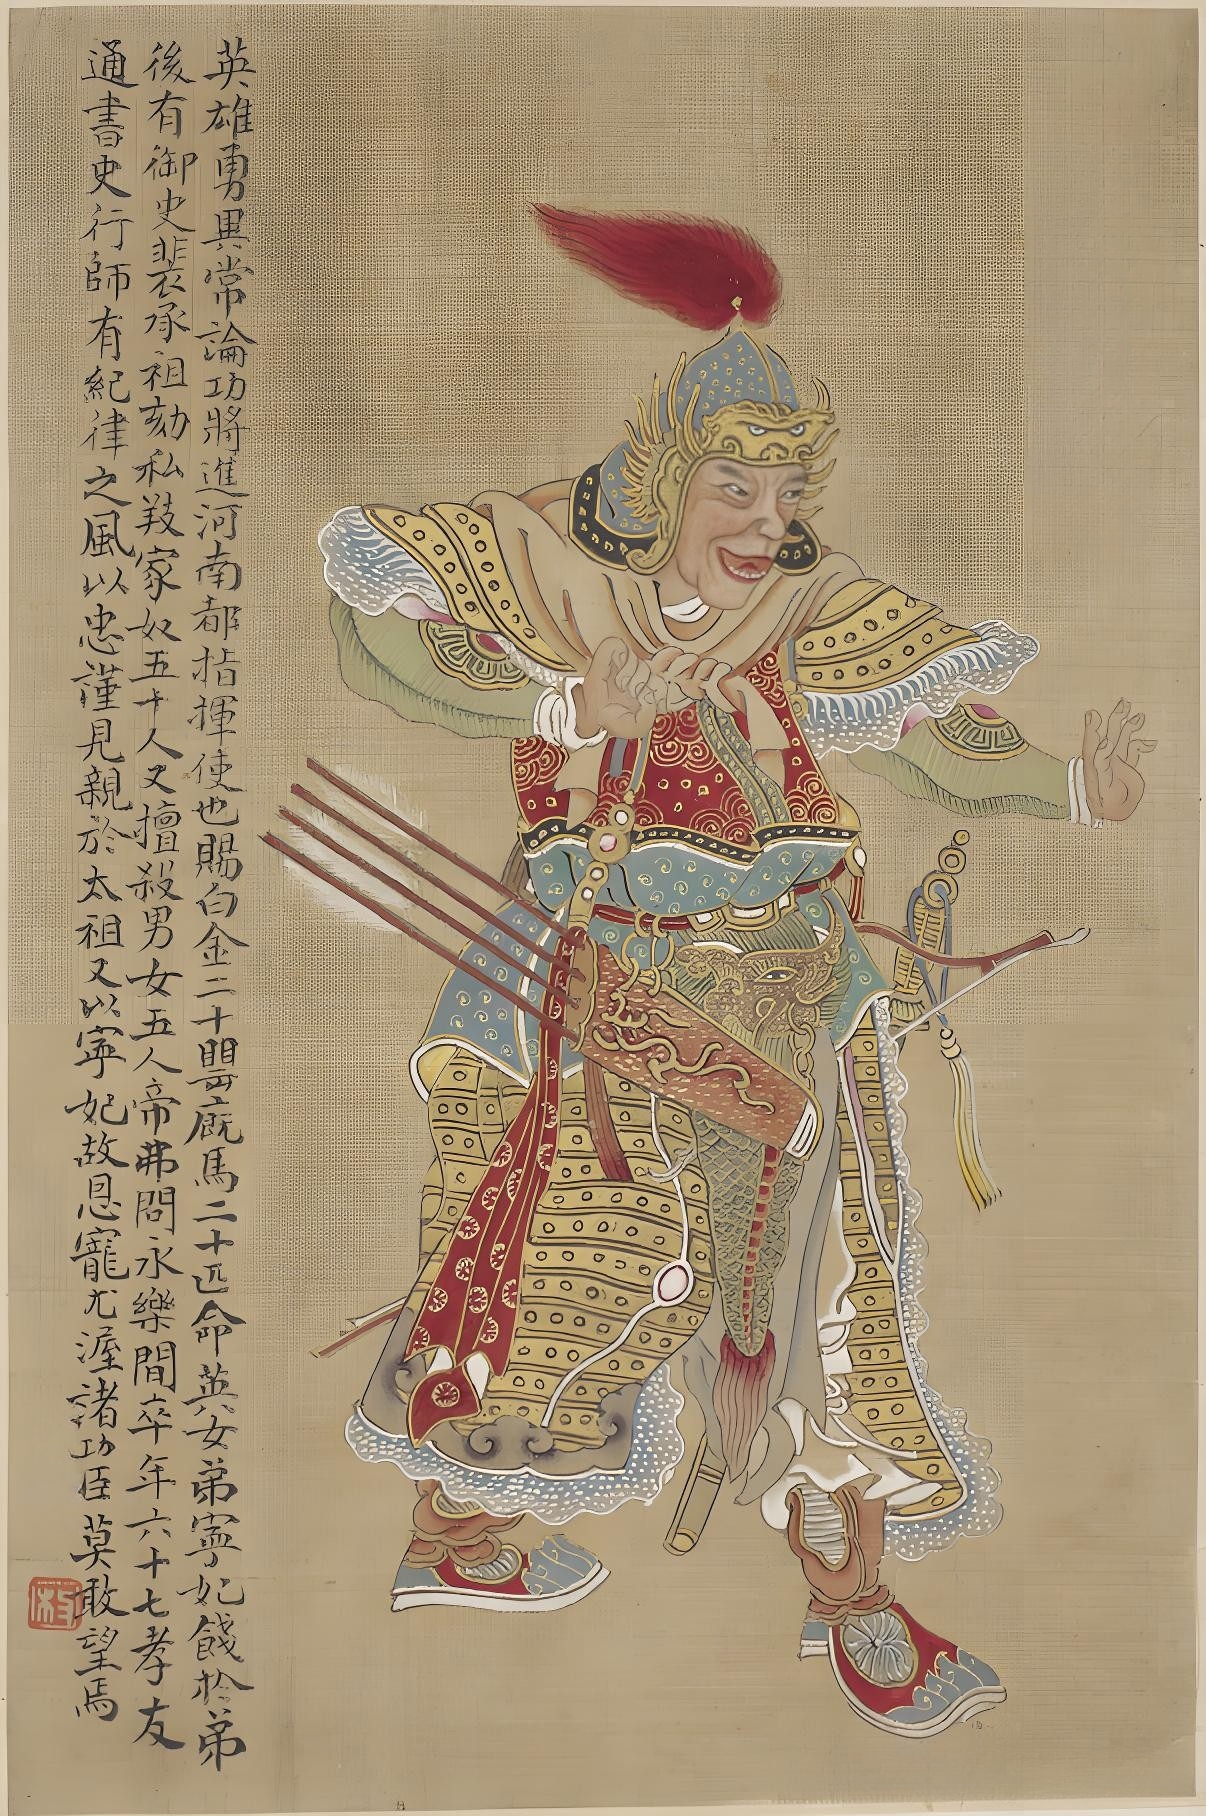 英雄勇異常論功將進河南都指揮使也賜白金二十罌廐馬二十匹命英女弟寧妃餞於弟
後有御史裴承祖劾私羖家奴五十人又擅殺男女五人帝弗問永樂間卒年六十七孝友
通書史行師有紀律之風以忠謹見親於太祖又以寧妃故恩寵尤渥諸功臣莫敢望焉